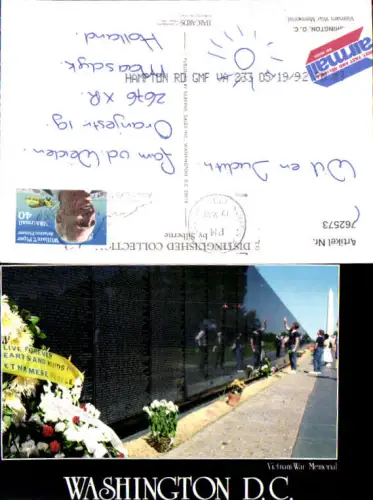 Vietnam War Memorial
WASHINGTON, D. C.
airmail
HAMPTON RD GMF VA 233 05/19/92
Wil en Judith
Fam vd Weiden
Oranjestr 19
2676 XR
Maasdijk
Holland
DISTINGUISHED COLLECTI
by Silberne
PM
19 MAY
William T. Piper
Aviation Pioneer
US Airmail
40
Artikel Nr.:
762573
LIVE FOREVER
EARTS AND MINDS
Vietnam War Memorial
WASHINGTON D.C.